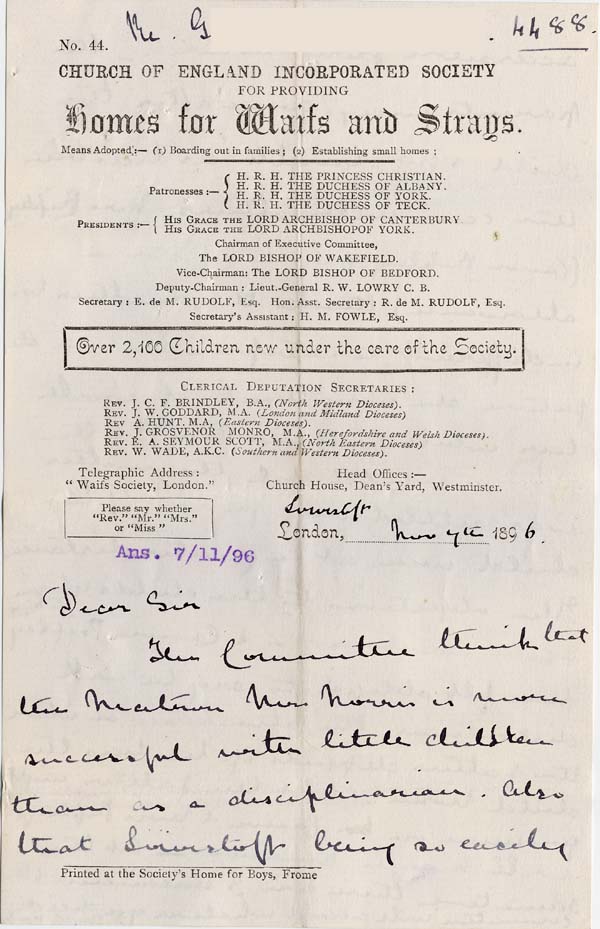 Re. G 4488.
No. 44.
CHURCH OF ENGLAND INCORPORATED SOCIETY
FOR PROVIDING
Homes for Waifs and Strays.
Means Adopted:— (1) Boarding out in families; (2) Establishing small homes;
Patronesses:— H. R. H. THE PRINCESS CHRISTIAN.
H. R. H. THE DUCHESS OF ALBANY.
H. R. H. THE DUCHESS OF YORK.
H. R. H. THE DUCHESS OF TECK.
PRESIDENTS:— HIS GRACE THE LORD ARCHBISHOP OF CANTERBURY.
HIS GRACE THE LORD ARCHBISHOPOF YORK.
Chairman of Executive Committee,
The LORD BISHOP OF WAKEFIELD.
Vice-Chairman: The LORD BISHOP OF BEDFORD.
Deputy-Chairman: Lieut.-General R. W. LOWRY C. B.
Secretary: E. de M. RUDOLF, Esq. Hon. Asst. Secretary: R. de M. RUDOLF, Esq.
Secretary's Assistant: H. M. FOWLE, Esq.
Over 2,100 Children now under the care of the Society.
CLERICAL DEPUTATION SECRETARIES:
REV. J. C. F. BRINDLEY, B.A., (North Western Dioceses).
REV. J. W. GODDARD, M.A. (London and Midland Dioceses)
REV A. HUNT. M.A, (Eastern Dioceses).
REV. J. GROSVENOR MONRO, M.A., (Herefordshire and Welsh Dioceses).
REV. E. A. SEYMOUR SCOTT, M.A., (North Eastern Dioceses)
REV. W. WADE, A.K.C. (Southern and Western Dioceses).
Telegraphic Address: Head Offices:—
"Waifs Society, London." Church House, Dean's Yard, Westminster.
Please say whether
"Rev." "Mr." "Mrs."
or "Miss"
Lowestoft
London, Nov 7th 1896.
Ans. 7/11/96
Dear Sir
The Committee think that
the Matron Mrs Norris is more
successful with little children
than as a disciplinarian. Also
that Lowestoft being so easily
Printed at the Society's Home for Boys, Frome